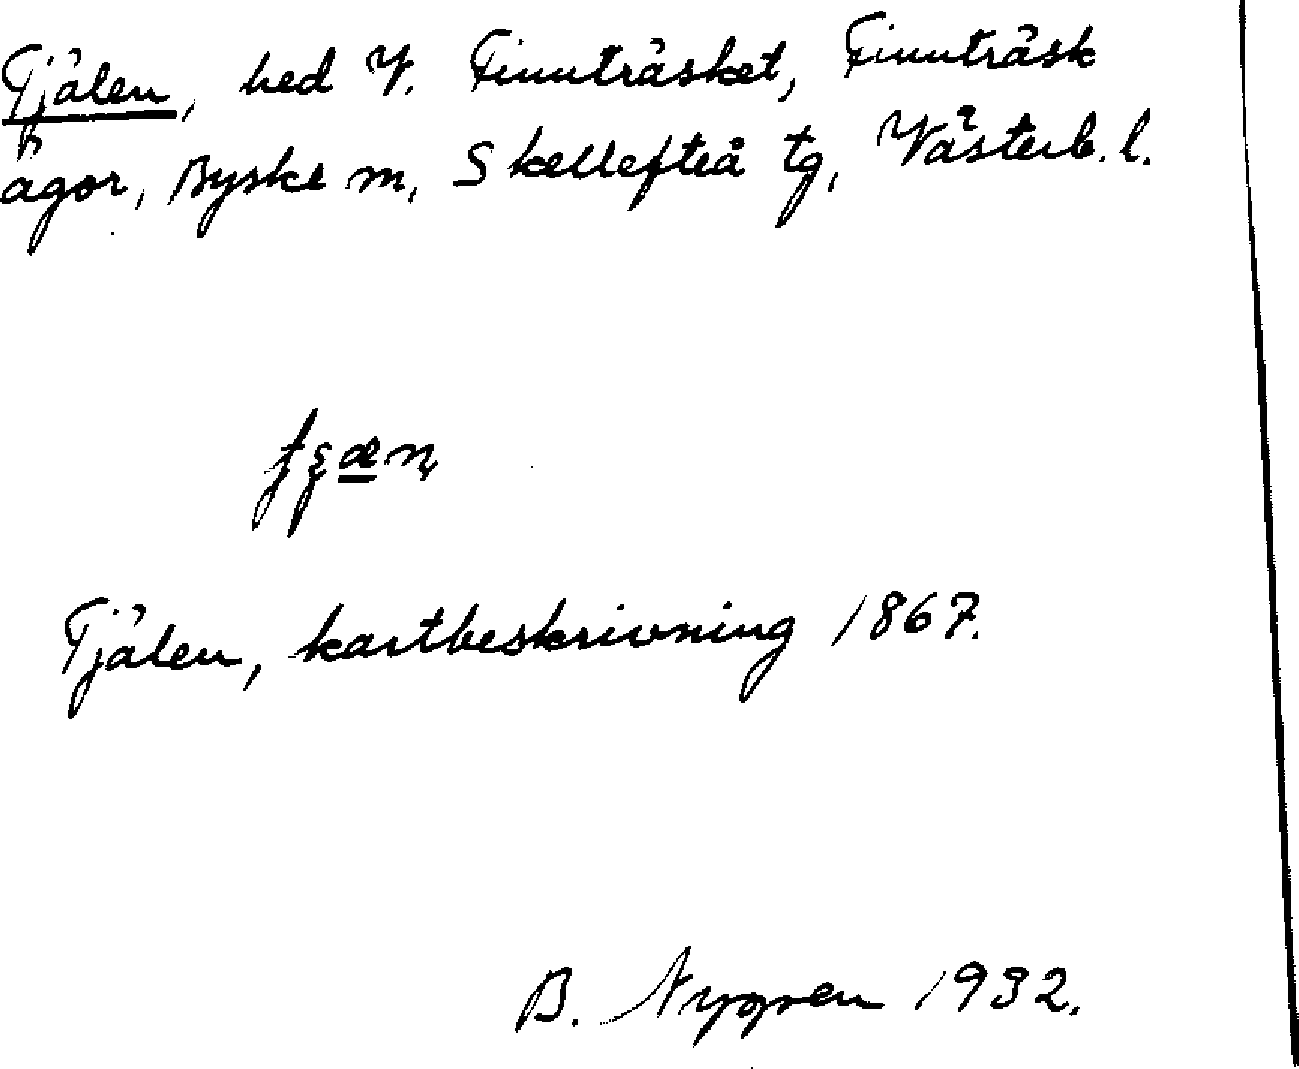 Tjälen, hed V. Finnträsket, Finnträsk
ägor, Byske sn, Skellefteå tg, Västerb. l.
Tjälen, kartbeskrivning 1867.
B. Nygren 1932.